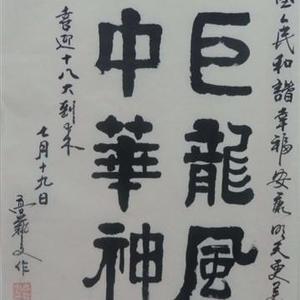 人民和諧幸福安康明天更
巨龍風
中華神
喜迎十八大到来
七月十九日
文作